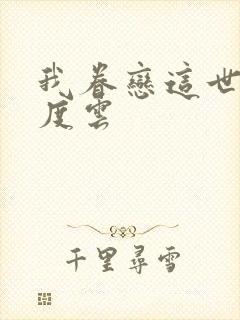 我眷戀這世
度雲
千里尋雪